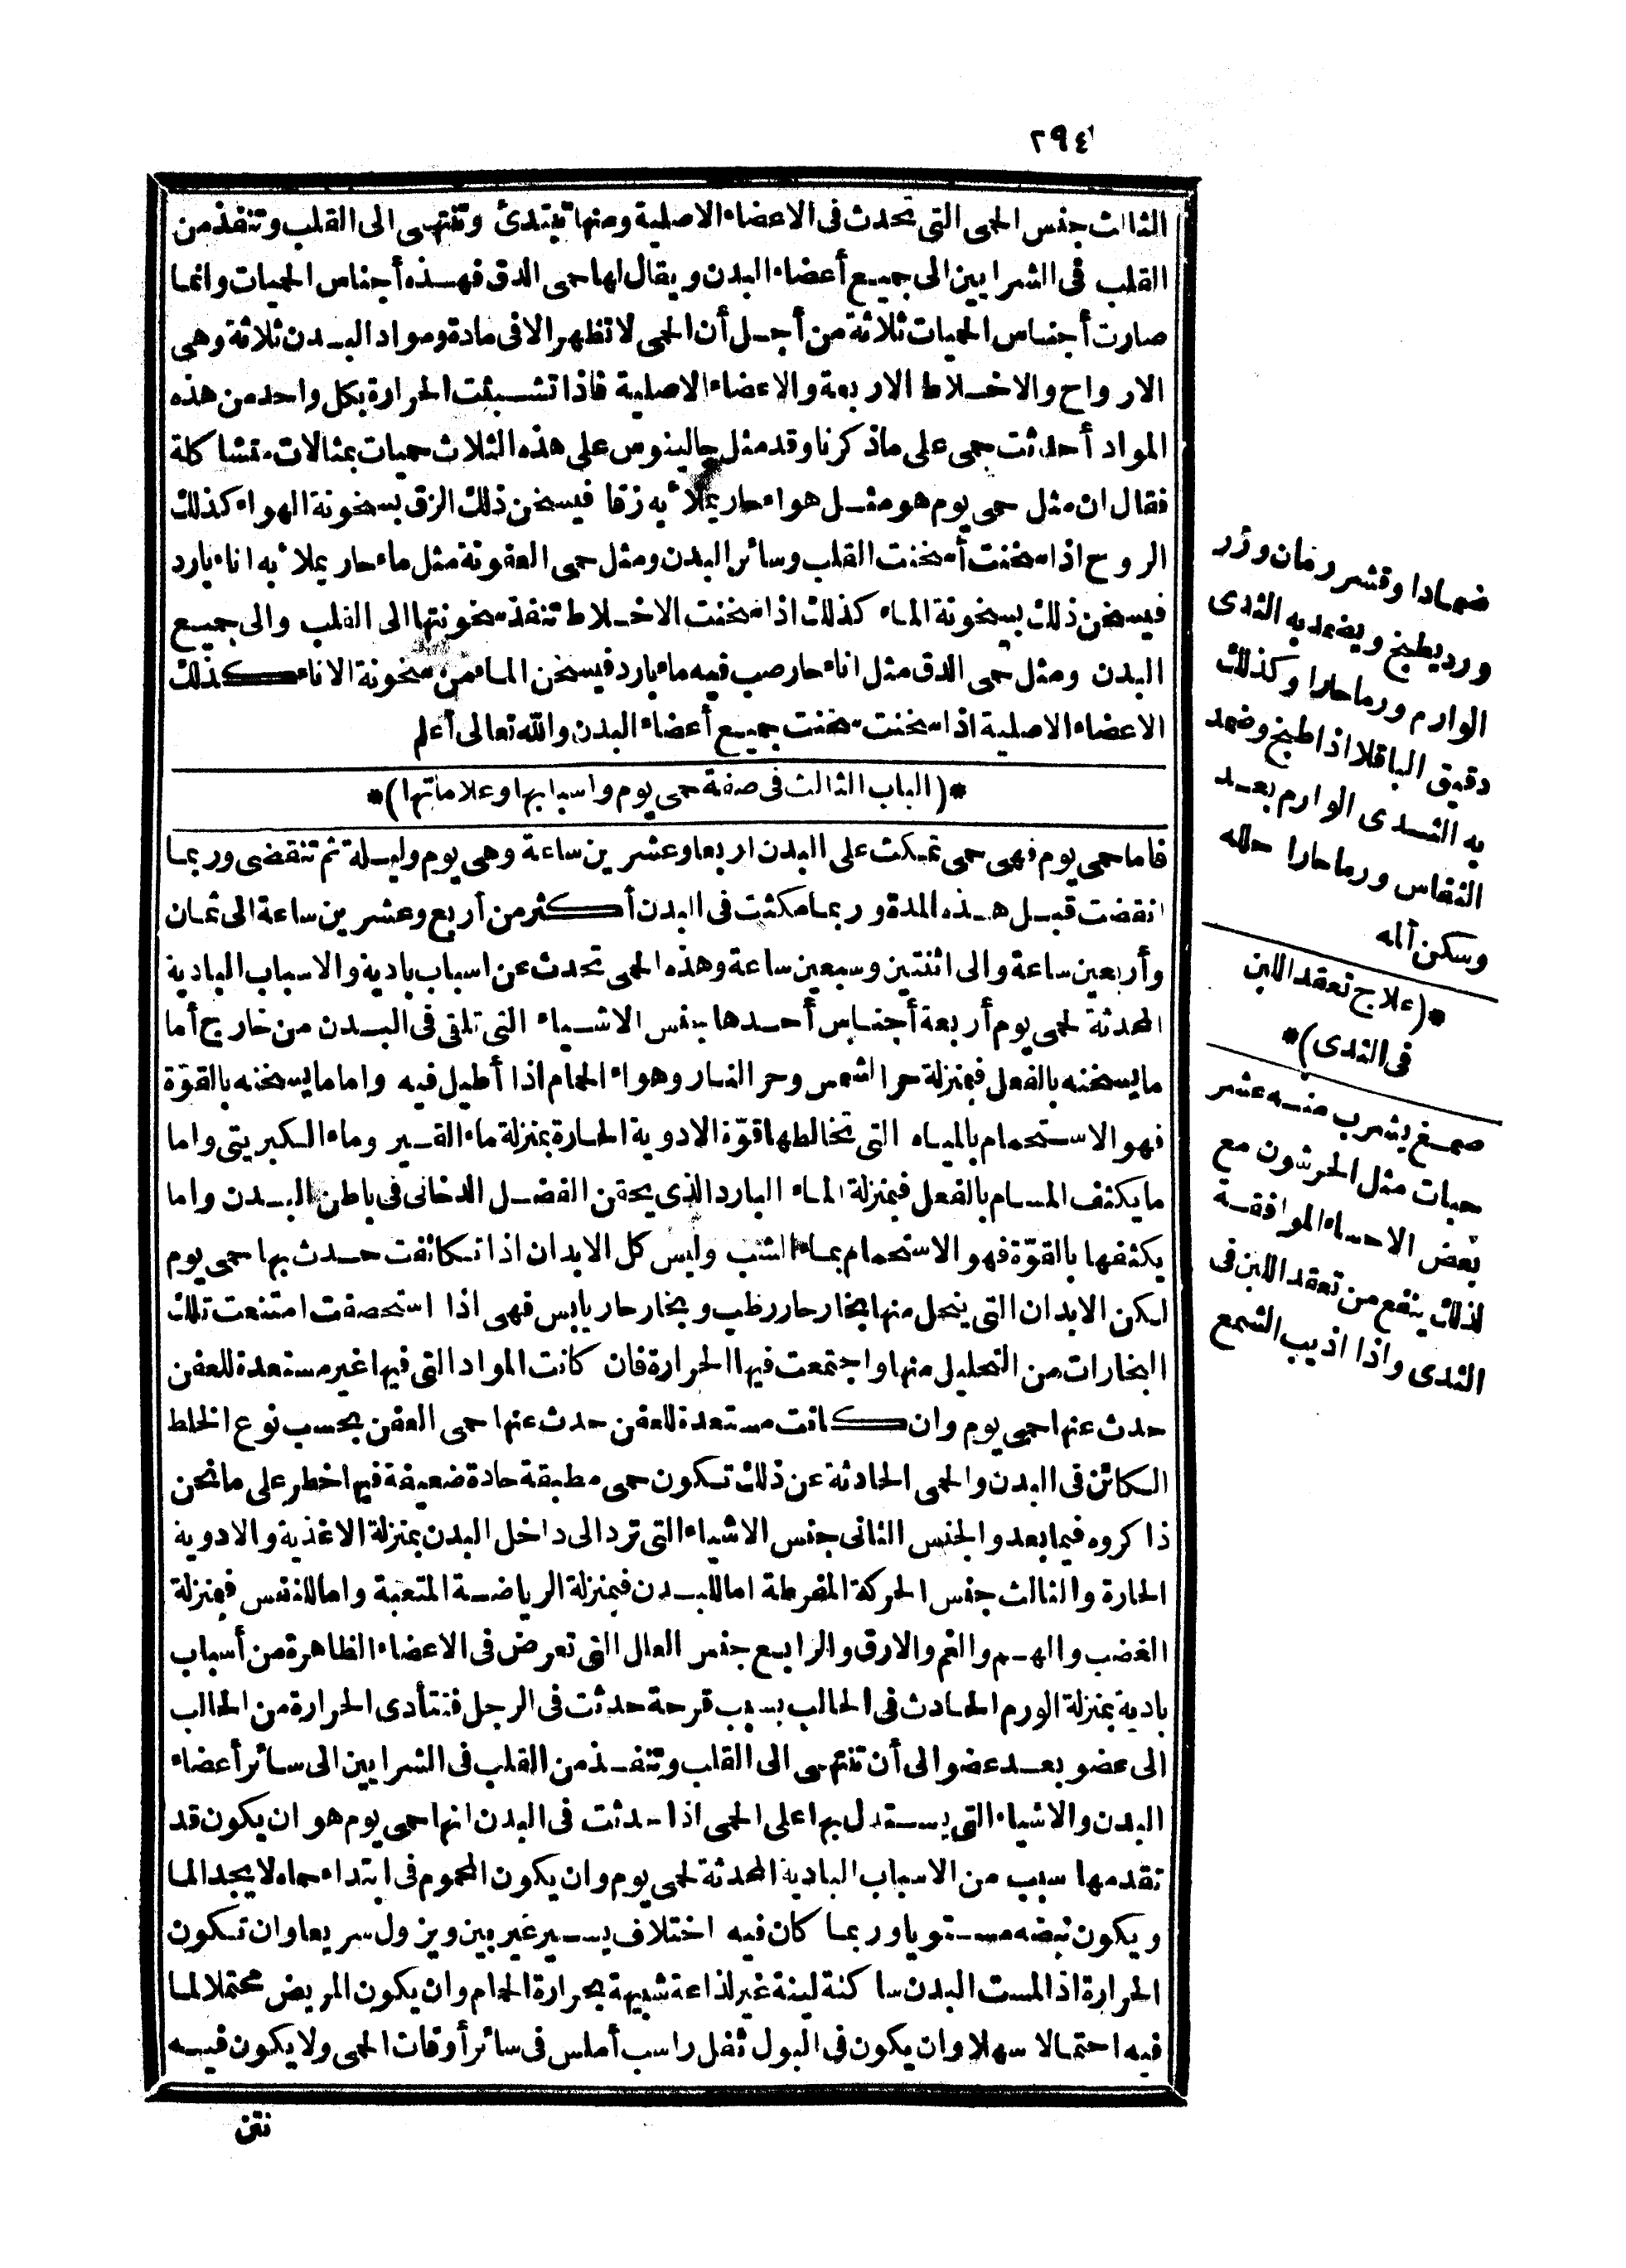 ٢٩٤
الثالث جنس الحمى التى تحدث فى الاعضاء الاصلية ومنها تبتدئ وتنتهى الى القلب وتنفذ من
القلب فى الشرايين الى جميع أعضاء البدن ويقال لها حمى الدق فهذه أجناس الحميات وانما
صارت أجناس الحميات ثلاثة من أجل أن الحمى لا تظهر الا فى مادة ومواد البدن ثلاثة وهى
الارواح والاخلاط الاربعة والاعضاء الاصلية فاذا تشبثت الحرارة بكل واحد من هذه
المواد أحدثت حمى على ما ذكرنا وقد مثل جالينوس على هذه الثلاث حميات بمثالات متشاكلة
فقال ان مثل حمى يوم هو مثل هواء حار يملأ به زقا فيسخن ذلك الزق بسخونة الهواء كذلك
الروح اذا سخنت أسخنت القلب وسائر البدن ومثل حمى العفونة مثل ماء حار يملأ به اناء بارد
فيسخن ذلك بسخونة الماء كذلك اذا سخنت الاخلاط تنفذ سخونتها الى القلب والى جميع
البدن ومثل حمى الدق مثل اناء حار صب فيه ماء بارد فيسخن الماء من سخونة الاناء كذلك
الاعضاء الاصلية اذا سخنت سخنت جميع أعضاء البدن والله تعالى أعلم
*(الباب الثالث فى صفة حمى يوم واسبابها وعلاماتها)*
فاما حمى يوم فهى حمى تمكث على البدن اربعا وعشرين ساعة وهى يوم وليلة ثم تنقضى وربما
انقضت قبل هذه المدة وربما مكثت فى البدن أكثر من أربع وعشرين ساعة الى ثمان
وأربعين ساعة والى اثنتين وسبعين ساعة وهذه الحمى تحدث عن اسباب بادية والاسباب البادية
المحدثة لحمى يوم أربعة أجناس أحدها جنس الاشياء التى تلقى فى البدن من خارج أما
ما يسخنه بالفعل فبمنزلة حر الشمس وحر النار وهواء الحمام اذا أطيل فيه واما ما يسخنه بالقوّة
فهو الاستحمام بالمياه التى تخالطها قوّة الادوية الحارة بمنزلة ماء القير وماء الكبريتى واما
ما يكثف المسام بالفعل فبمنزلة الماء البارد الذى يحقن الفضل الدخانى فى باطن البدن واما
يكثفها بالقوّة فهو الاستحمام بماء الشب وليس كل الابدان اذا تكاثفت حدث بها حمى يوم
لكن الابدان التى ينحل منها بخار حار رطب وبخار حار يابس فهى اذا استحصفت امتنعت تلك
البخارات من التحليل منها واجتمعت فيها الحرارة فان كانت المواد التى فيها غير مستعدة للعفن
حدث عنها حمى يوم وان كانت مستعدة للعفن حدث عنها حمى العفن بحسب نوع الخلط
الكائن فى البدن والحمى الحادثة عن ذلك تكون حمى مطبقة حادة ضعيفة فيها خطر على ما نحن
ذاكروه فيما بعد والجنس الثانى جنس الاشياء التى ترد الى داخل البدن بمنزلة الاغذية والادوية
الحارة والثالث جنس الحركة المفرطة اما للبدن فبمنزلة الرياضة المتعبة واما للنفس فبمنزلة
الغضب والهم والغم والارق والرابع جنس العلل التى تعرض فى الاعضاء الظاهرة من أسباب
بادية بمنزلة الورم الحادث فى الحالب بسبب قرحة حدثت فى الرجل فتتأدى الحرارة من الحالب
الى عضو بعد عضو الى أن تنتهى الى القلب وتنفذ من القلب فى الشرايين الى سائر أعضاء
البدن والاشياء التى يستدل بها على الحمى اذا حدثت فى البدن انها حمى يوم هو ان يكون قد
تقدمها سبب من الاسباب البادية المحدثة لحمى يوم وان يكون المحموم فى ابتداء حماه لا يجد الما
ويكون نبضه مستويا وربما كان فيه اختلاف يسير غير بين ويزول سريعا وان تكون
الحرارة اذا لمست البدن ساكنة لينة غير لذاعة شبيهة بحرارة الحمام وان يكون المريض محتملا لما
فيه احتمالا سهلا وان يكون فى البول ثفل راسب أملس فى سائر أوقات الحمى ولا يكون فيه
نتن
ضمادا وقشر رمان وزر
ورد يطبخ ويضمد به الثدى
الوارم ورما حارا وكذلك
دقيق الباقلا اذا طبخ وضمد
به الثدى الوارم بعد
النفاس ورما حارا حلله
وسكن ألمه
*(علاج تعقد اللبن
فى الثدى)*
صمغ يشرب منه عشر
حبات مثل الحرشون مع
بعض الاحساء الموافقة
لذلك ينفع من تعقد اللبن فى
الثدى واذا اذيب الشمع